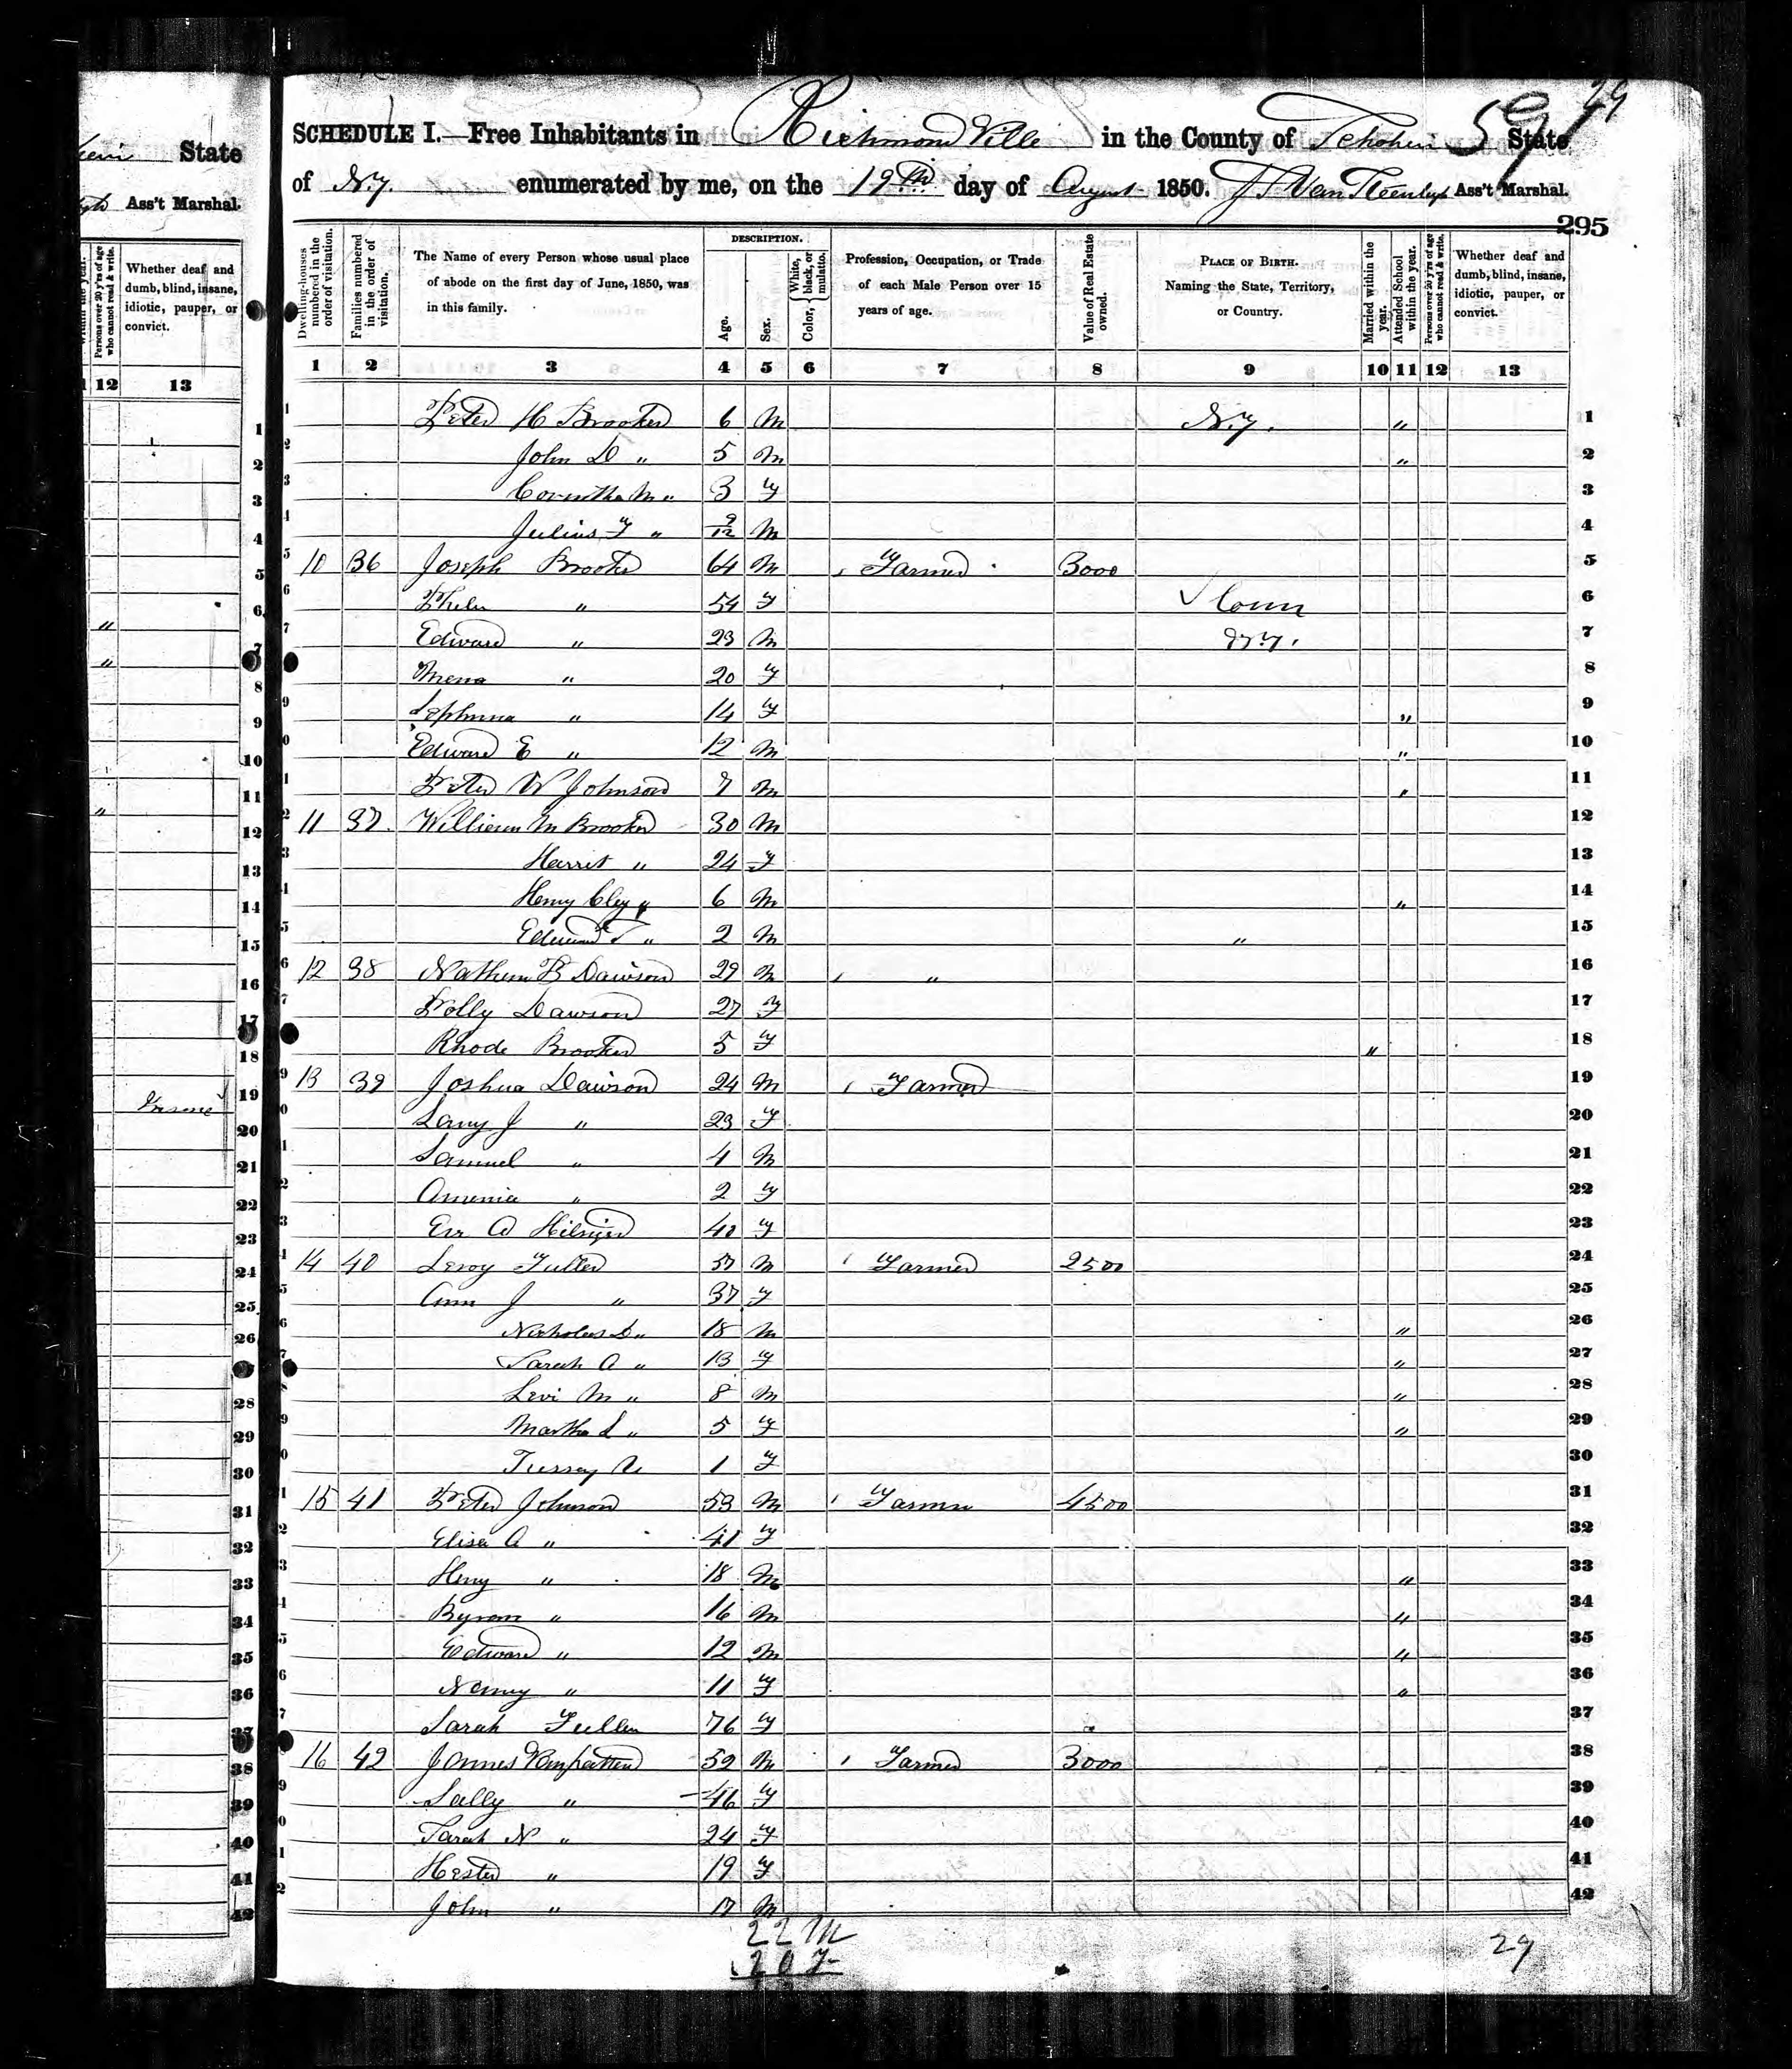 State
Ass't Marshal.
Persons over 20 y'rs of age who cannot read & write.
Whether deaf and dumb, blind, insane, idiotic, pauper, or convict.
12 13
29
59
SCHEDULE I.—Free Inhabitants in Richmond Ville in the County of Schoharie State
of N.Y. enumerated by me, on the 19th day of August 1850. Ass't Marshal.
295
Dwelling-houses numbered in the order of visitation.
Families numbered in the order of visitation.
The Name of every Person whose usual place of abode on the first day of June, 1850, was in this family.
DESCRIPTION.
Age.
Sex.
Color, White, black, or mulatto.
Profession, Occupation, or Trade of each Male Person over 15 years of age.
Value of Real Estate owned.
PLACE OF BIRTH. Naming the State, Territory, or Country.
Married within the year.
Attended School within the year.
Persons over 20 y'rs of age who cannot read & write.
Whether deaf and dumb, blind, insane, idiotic, pauper, or convict.
1 2 3 4 5 6 7 8 9 10 11 12 13
1 Peter H Brooker 6 M N.Y. " 1
2 John D " 5 M " 2
3 M " 3 F 3
4 Julius F " 9/12 M 4
5 10 36 Joseph Brooker 64 M Farmer 3000 5
6 " 54 F Conn 6
7 Edward " 23 M N.Y. 7
8 " 20 F 8
9 " 14 F " 9
10 Edward E " 12 M " 10
11 Peter W Johnson 7 M " 11
12 11 37 William M Brooker 30 M 12
13 Harriet " 24 F 13
14 Henry Clay " 6 M " 14
15 Edward T " 2 M " 15
16 12 38 Nathan B Dawson 29 M " 16
17 Polly Dawson 27 F 17
18 Rhoda Brooker 5 F " 18
19 13 39 Joshua Dawson 24 M Farmer 19
20 J " 23 F 20
21 Samuel " 4 M 21
22 Amenia " 2 F 22
23 A 40 F 23
24 14 40 Leroy Fuller 37 M Farmer 2500 24
25 Ann J " 37 F 25
26 Nicholas D " 18 M " 26
27 Sarah A " 13 F " 27
28 Levi M " 8 M " 28
29 Martha L " 5 F " 29
30 1 F 30
31 15 41 Peter Johnson 53 M Farmer 4500 31
32 Elisa A " 41 F 32
33 Henry " 18 M " 33
34 Byron " 16 M " 34
35 Edward " 12 M " 35
36 Nancy " 11 F " 36
37 Sarah Fuller 76 F 37
38 16 42 James Vanpatten 52 M Farmer 3000 38
39 Sally " 46 F 39
40 Sarah N " 24 F 40
41 Hester " 19 F 41
42 John " 17 M 42
22 M
20 F
29